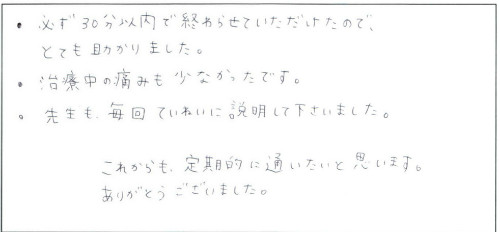 • 必ず30分以内で終わらせていただけたので、
とても助かりました。
• 治療中の痛みも少なかったです。
• 先生も、毎回ていねいに説明して下さいました。
これからも、定期的に通いたいと思います。
ありがとうございました。